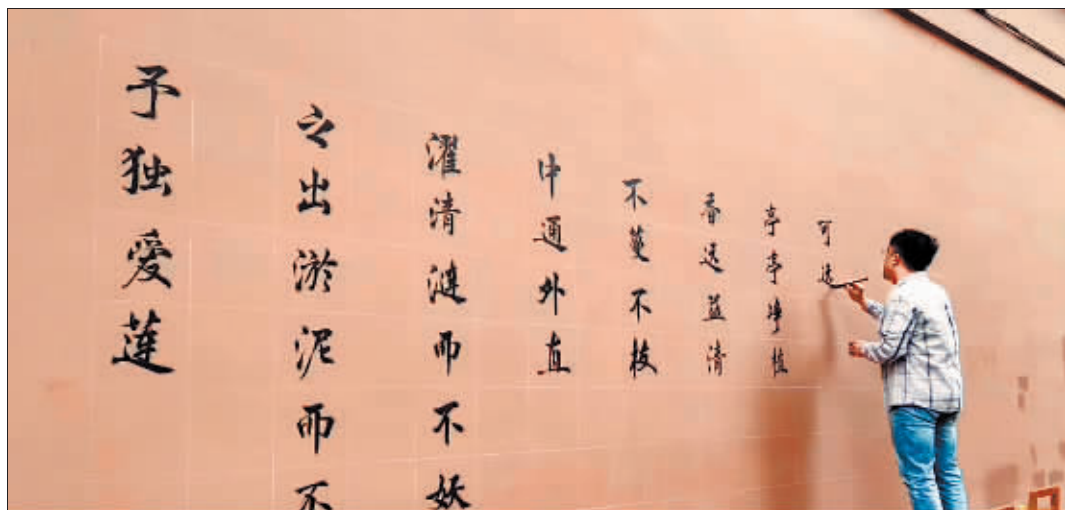 予独爱莲
之出淤泥而不
濯清涟而不妖
中通外直
不蔓不枝
香远益清
亭亭净植
可远